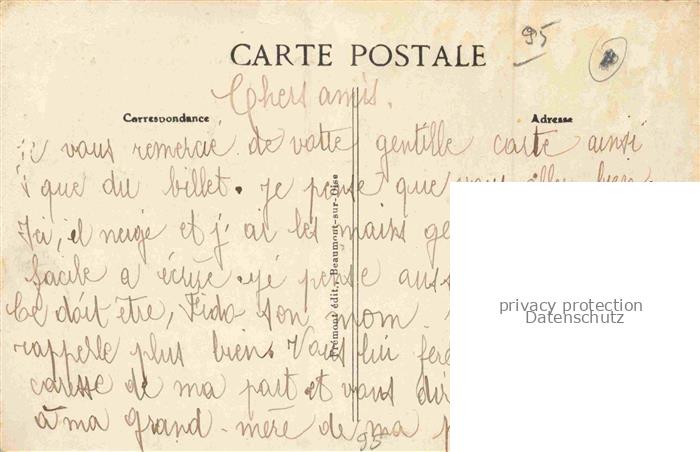 95
CARTE POSTALE
Chers amis.
Correspondance
Adresse
je vous remercie de votte gentille carte ainsi
que du billet. je pense que vous allez bien
Ici, il neige et j'ai les mains
facile a écrire. je pense auss
Ce doit être, Fido son nom.
rappelle plus bien. Vous lui
caresse de ma part et vous
à ma grand-mère de ma
Frémont édit., Beaumont-sur-Oise
95
privacy protection
Datenschutz